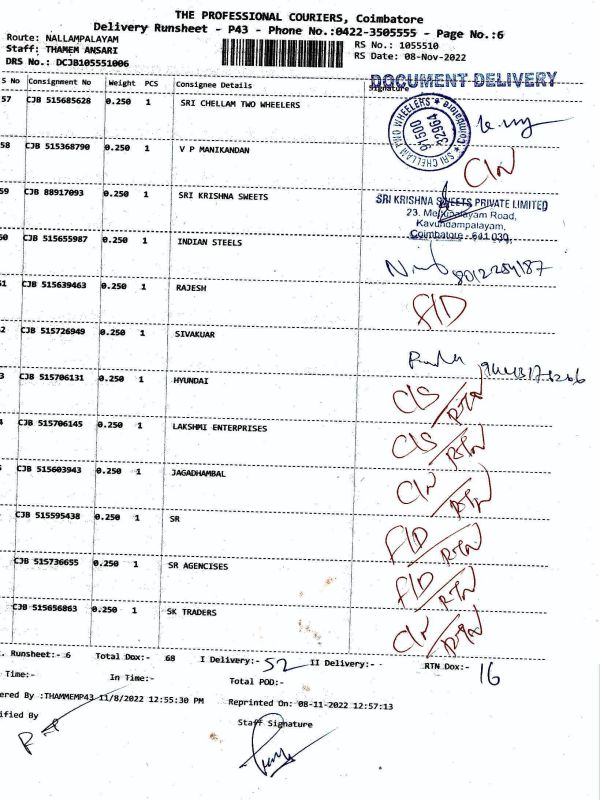 THE PROFESSIONAL COURIERS, Coimbatore
Delivery Runsheet - P43 - Phone No.:0422-3505555 - Page No.:6
Route: NALLAMPALAYAM
Staff: THAMEM ANSARI
DRS No.: DCJB105551006
RS No.: 1055510
RS Date: 08-Nov-2022
DOCUMENT DELIVERY
S No Consignment No Weight PCS Consignee Details Signature
57 CJB 515685628 0.250 1 SRI CHELLAM TWO WHEELERS
SRI CHELLAM TWO WHEELERS * Coimbatore *
58 CJB 515368790 0.250 1 V P MANIKANDAN C/N
59 CJB 88917093 0.250 1 SRI KRISHNA SWEETS
SRI KRISHNA SWEETS PRIVATE LIMITED
Kavundampalayam,
Coimbatore - 641 030.
60 CJB 515655987 0.250 1 INDIAN STEELS
51 CJB 515639463 0.250 1 RAJESH F/D
2 CJB 515726949 0.250 1 SIVAKUAR
3 CJB 515706131 0.250 1 HYUNDAI C/S RTN
4 CJB 515706145 0.250 1 LAKSHMI ENTERPRISES C/S RTN
CJB 515603943 0.250 1 JAGADHAMBAL C/N RTN
CJB 515595438 0.250 1 SR F/D RTN
CJB 515736655 0.250 1 SR AGENCISES F/D RTN
CJB 515656863 0.250 1 SK TRADERS C/N RTN
. Runsheet:- 6 Total Dox:- 68 I Delivery:- 52 II Delivery:- RTN Dox:- 16
Time:- In Time:- Total POD:-
ered By :THAMMEMP43 11/8/2022 12:55:30 PM Reprinted On: 08-11-2022 12:57:13
ified By Staff Signature